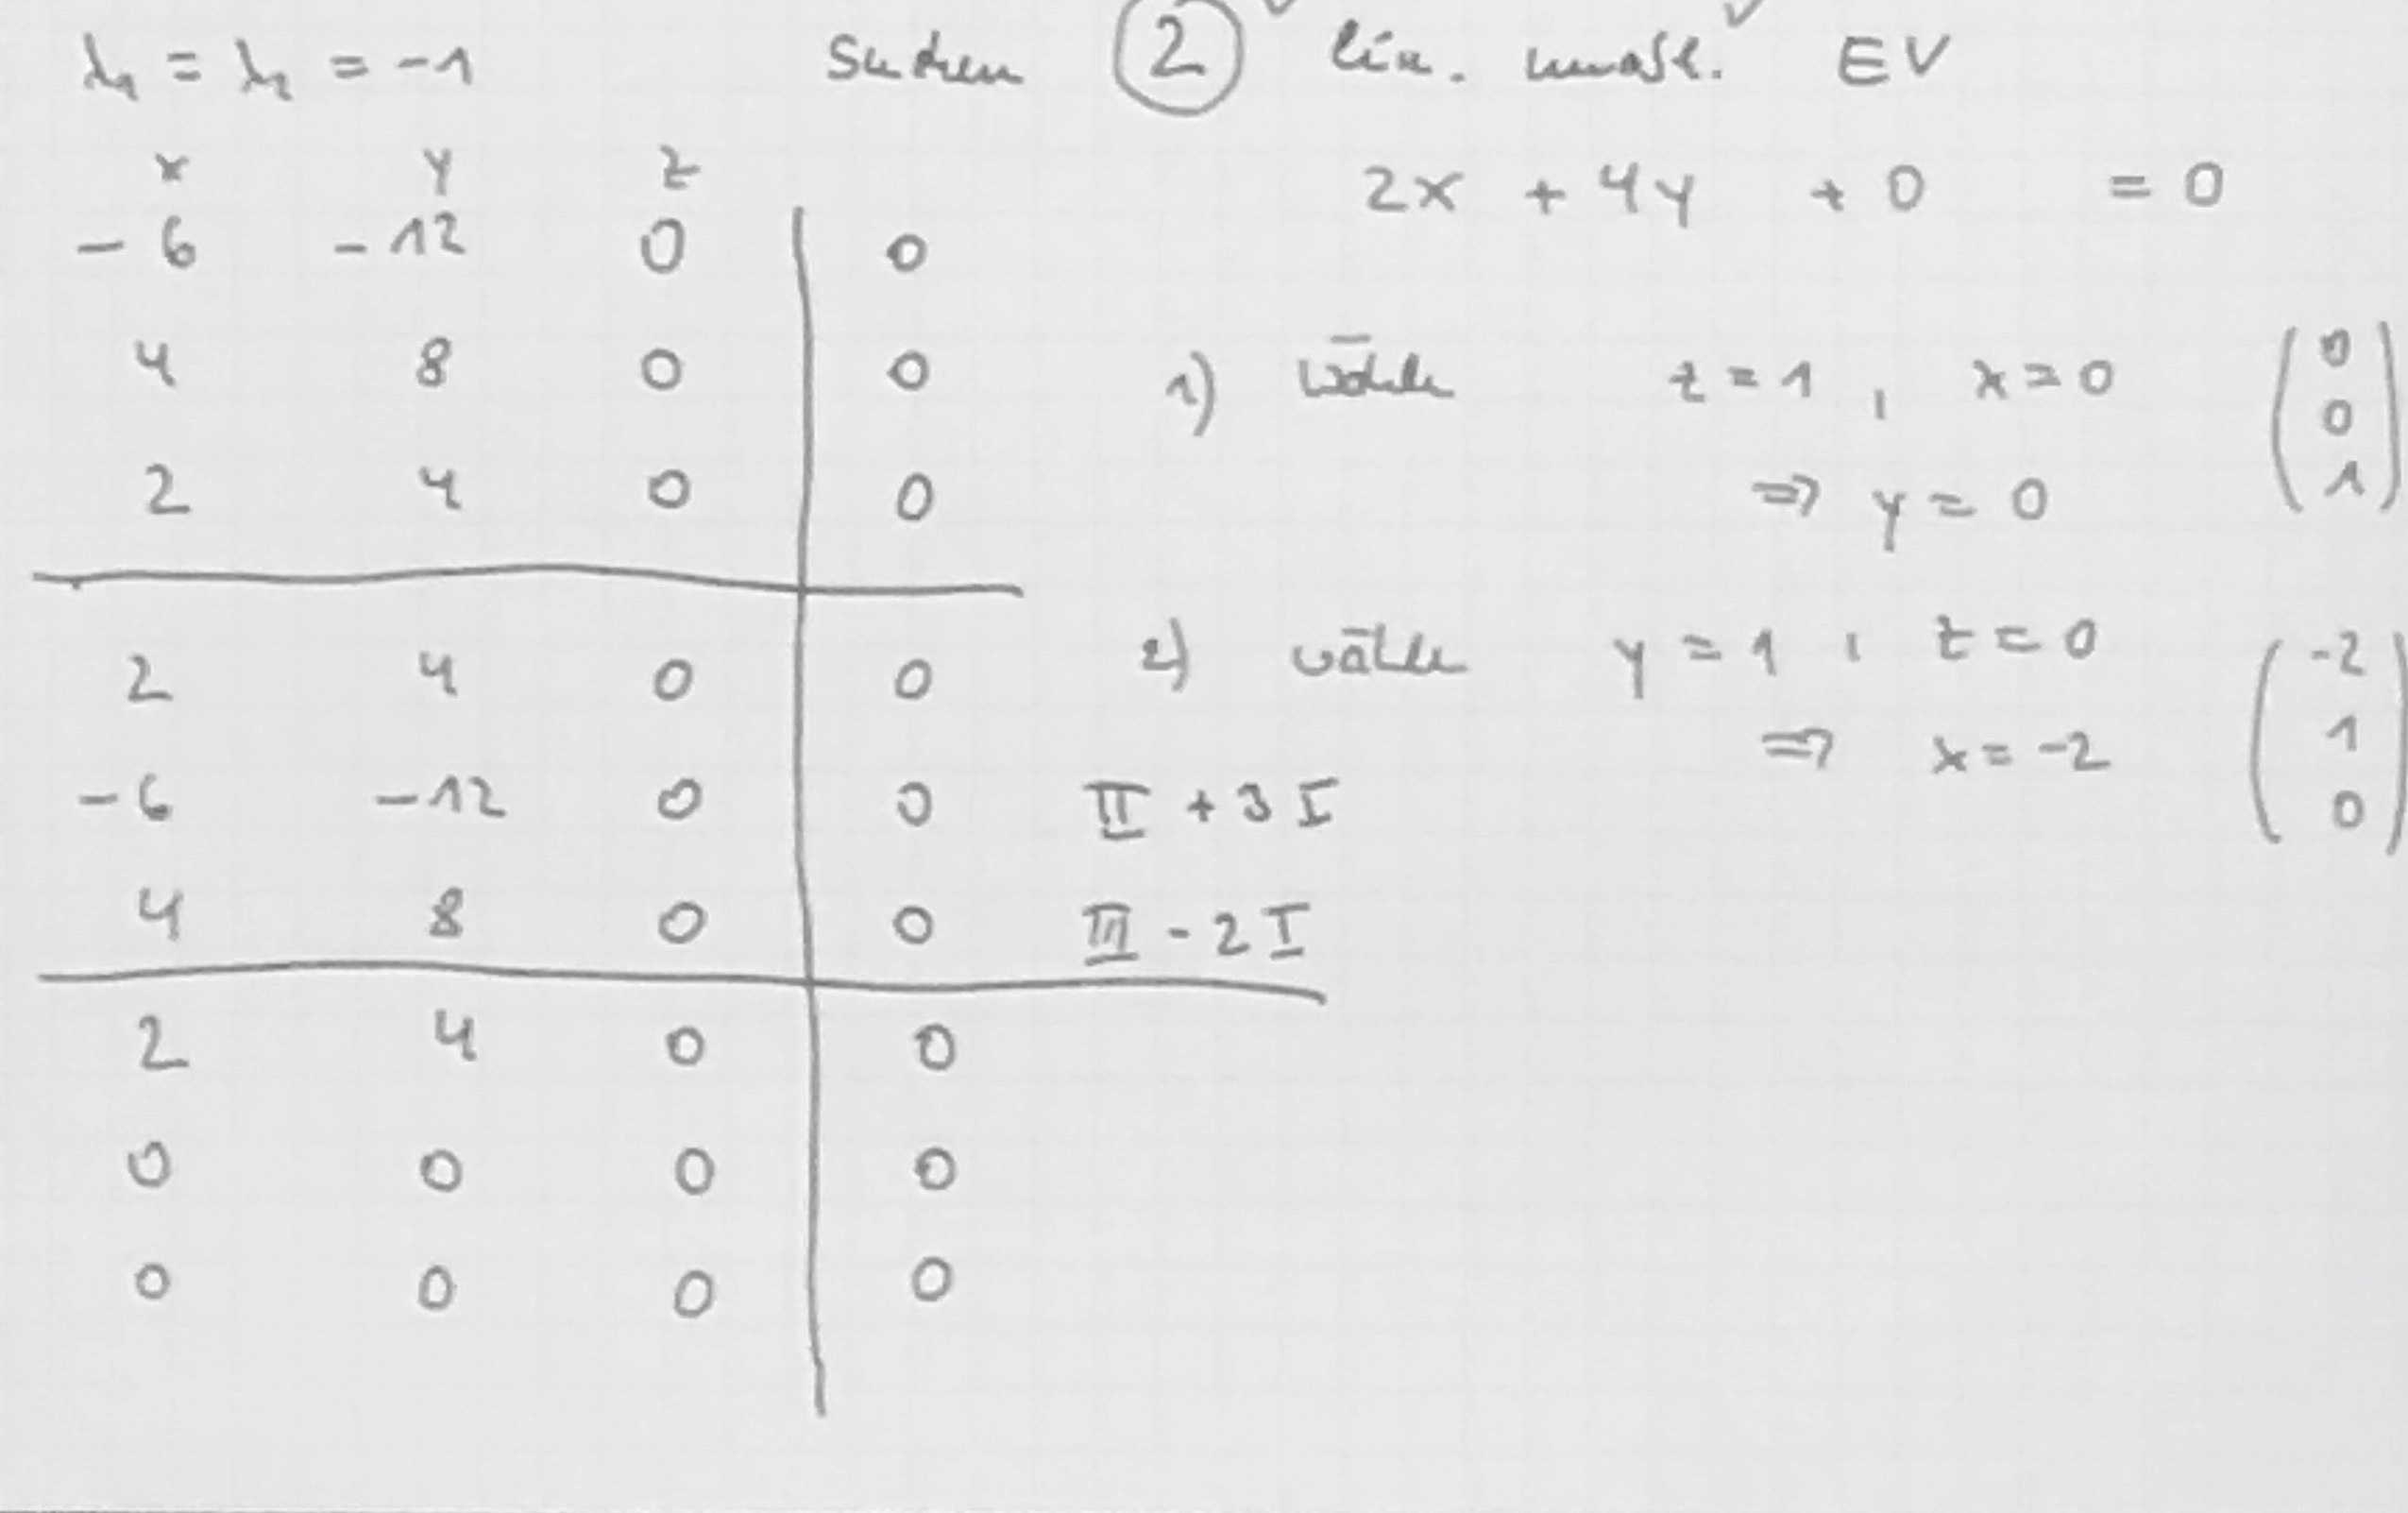 λ₁ = λ₂ = -1 Suchen 2 lin. unabh. EV
x y z
-6 -12 0 | 0
4 8 0 | 0
2 4 0 | 0
2 4 0 | 0
-6 -12 0 | 0 II + 3 I
4 8 0 | 0 III - 2 I
2 4 0 | 0
0 0 0 | 0
0 0 0 | 0
2x + 4y + 0 = 0
1) wähle z = 1, x = 0
⇒ y = 0
(0
0
1)
2) wähle y = 1, z = 0
⇒ x = -2
(-2
1
0)